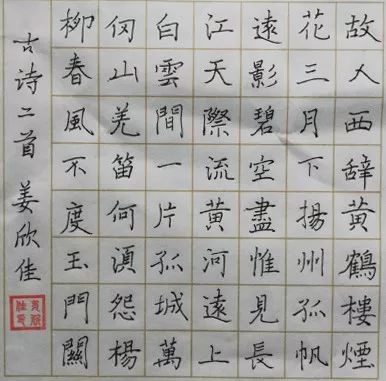 故人西辞黄鶴樓煙
花三月下揚州孤帆
遠影碧空盡惟見長
江天際流黄河遠上
白雲間一片孤城萬
仞山羌笛何須怨楊
柳春風不度玉門關
古诗二首 姜欣佳